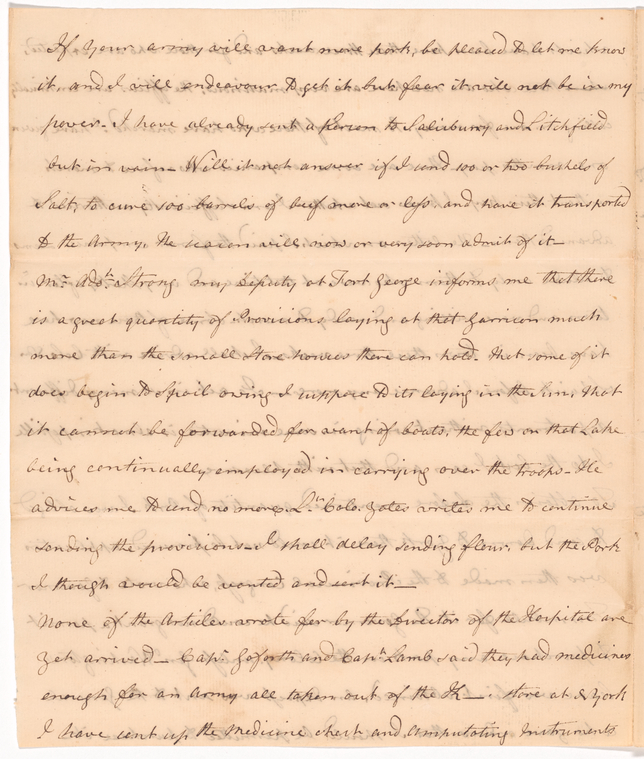 If Your army will want more pork, be pleased to let me know
it and I will endeavour to get it but fear it will not be in my
power - I have already sent a person to Salisbury and Litchfield
but in vain - Will it not answer if I send 100 or two bushels of
Salt, to cure 100 barrels of beef more or less, and have it transported
to the Army, the season will now or very soon admit of it -
Mr. Strong my Deputy at Fort George informs me that there
is a great quantity of Provisions laying at that Garrison much
more than the small Store houses there can hold. that some of it
does begin to Spoil owing I suppose to its laying in the Sun, that
it cannot be forwarded for want of boats, the few on that Lake
being continually employed in carrying over the troops - He
advises me to send no more. Lt. Colo. Yates writes me to continue
sending the provisions - I shall delay sending flour, but the Pork
I though would be wanted and sent it -
None of the Articles wrote for by the Director of the Hospital are
yet arrived - Capt. Goforth and Capt. Lamb said they had medicines
enough for an Army all taken out of the K—. store at N York
I have sent up the Medicine chest and Amputating Instruments